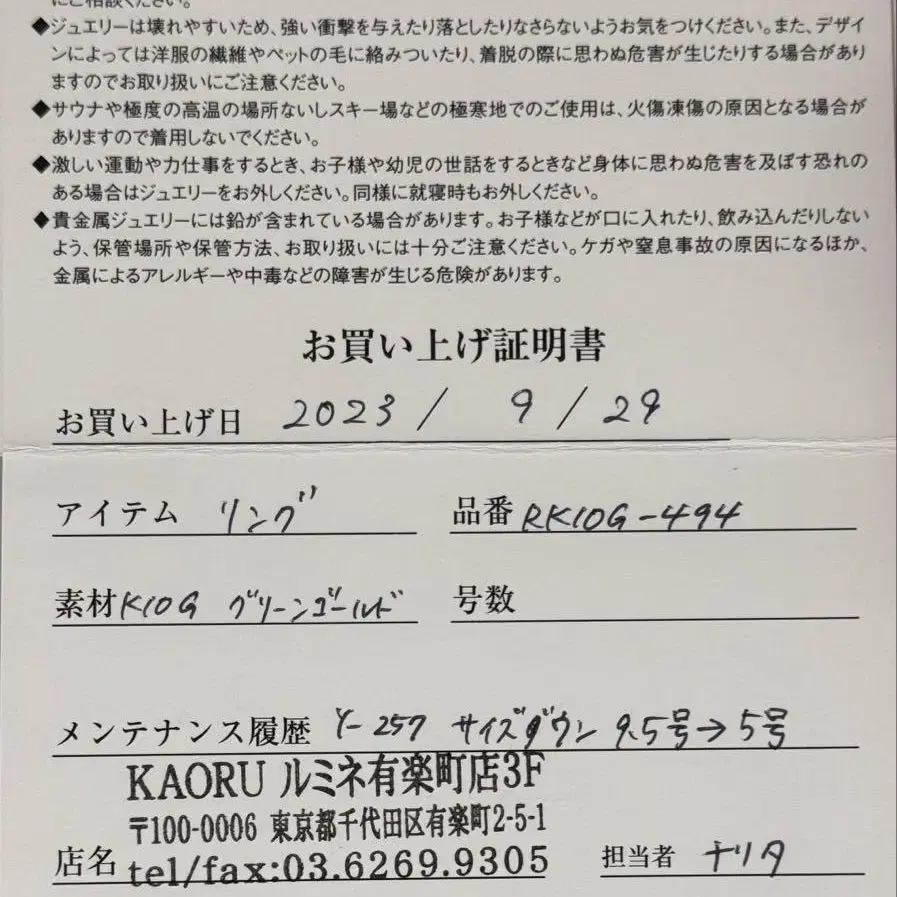 にご相談ください。
◆ジュエリーは壊れやすいため、強い衝撃を与えたり落としたりなさらないようお気をつけください。また、デザイ
ンによっては洋服の繊維やペットの毛に絡みついたり、着脱の際に思わぬ危害が生じたりする場合があり
ますのでお取り扱いにご注意ください。
◆サウナや極度の高温の場所ないしスキー場などの極寒地でのご使用は、火傷凍傷の原因となる場合が
ありますので着用しないでください。
◆激しい運動や力仕事をするとき、お子様や幼児の世話をするときなど身体に思わぬ危害を及ぼす恐れの
ある場合はジュエリーをお外しください。同様に就寝時もお外しください。
◆貴金属ジュエリーには鉛が含まれている場合があります。お子様などが口に入れたり、飲み込んだりしない
よう、保管場所や保管方法、お取り扱いには十分ご注意ください。ケガや窒息事故の原因になるほか、
金属によるアレルギーや中毒などの障害が生じる危険があります。
お買い上げ証明書
お買い上げ日 2023 / 9 / 29
アイテム リング 品番 RK10G-494
素材 K10G グリーンゴールド 号数
メンテナンス履歴 Y-257 サイズダウン 9.5号→5号
KAORU ルミネ有楽町店3F
〒100-0006 東京都千代田区有楽町2-5-1
店名 tel/fax:03.6269.9305 担当者 ナリタ